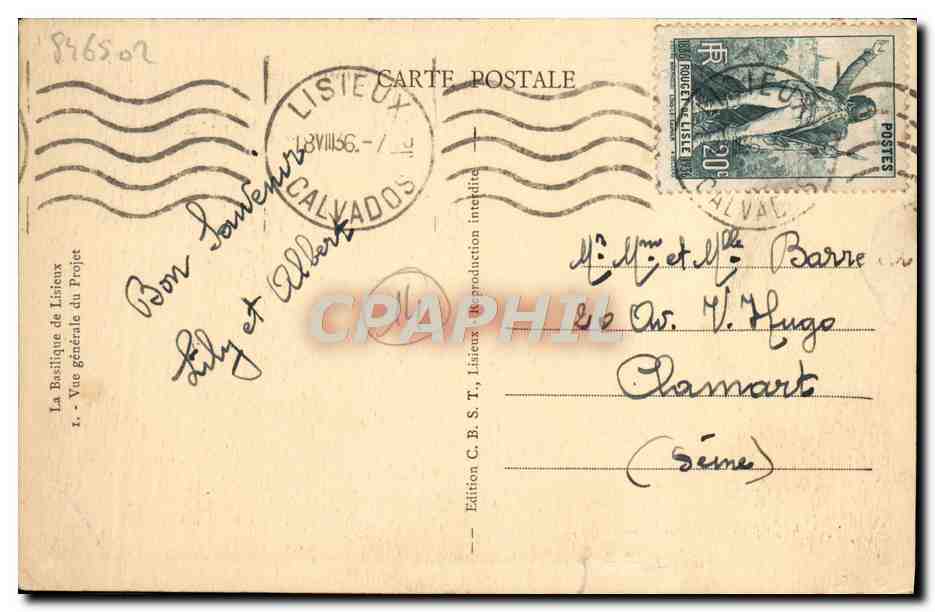 846502
CARTE POSTALE
LISIEUX
CALVADOS
18VIII36.-7
RF
ROUGET DE LISLE
20c
POSTES
LISIEUX
CALVADOS
Bon Souvenir
Lily et Albert
La Basilique de Lisieux
1. - Vue générale du Projet
CPAPHIL
Edition C. B. S. T., Lisieux - Reproduction interdite
Mr. Mme et Mlle Barre
20 Av. V. Hugo
Clamart
(Seine)